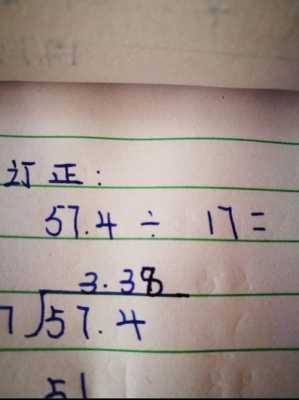 订正:
57.4 ÷ 17 =
3.38
7)57.4
51